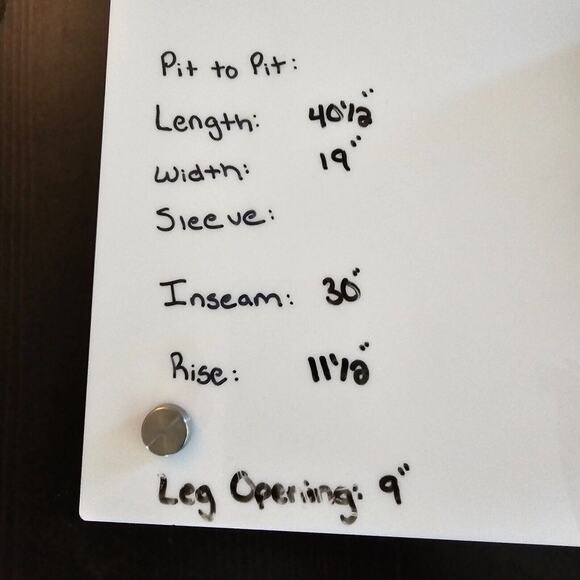 Pit to Pit:
Length: 40 1/2"
Width: 19"
Sleeve:
Inseam: 30"
Rise: 11 1/2"
Leg Opening: 9"